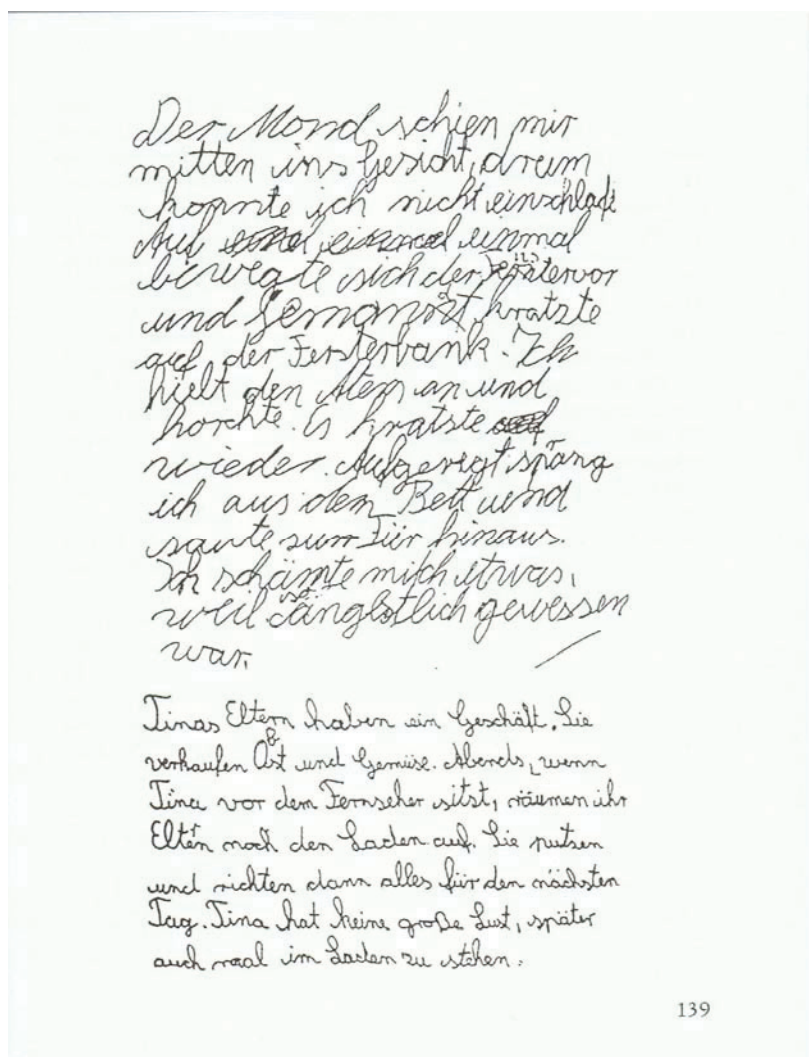 Der Mond schien mir
mitten ins Gesicht, drum
konnte ich nicht einschlafe
Auf einmal
bewegte sich der vor
und kratzte
auf der Fensterbank. Ich
hielt den Atem an und
horchte. Es kratste
wieder. Aufgeregt sprang
ich aus dem Bett und
sauste zur Tür hinaus.
Ich schämte mich etwas,
weil so änglstlich gewessen
war.
Tinas Eltern haben ein Geschäft. Sie
verkaufen Obst und Gemüse. Abends, wenn
Tina vor dem Fernseher sitst, räumen ihr
Eltern noch den Laden auf. Sie putsen
und richten dann alles für den nächsten
Tag. Tina hat keine große Lust, später
auch maal im Laden zu stehen.
139